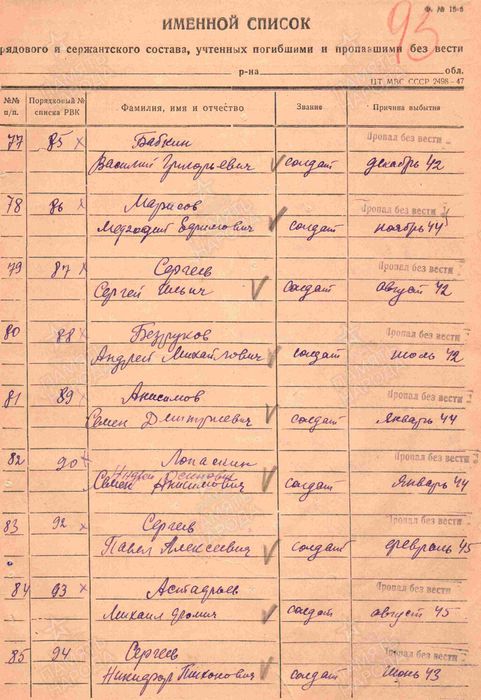 Ф. № 15-б
93
ИМЕННОЙ СПИСОК
рядового и сержантского состава, учтенных погибшими и пропавшими без вести
р-на обл.
ЦТ МВС СССР 2498-47
№№ п/п. Порядковый № списка РВК Фамилия, имя и отчество Звание Причина выбытия
77 85 х Бабкин Пропал без вести
Василий Григорьевич солдат декабрь 42
78 86 х Марисов Пропал без вести
Ефимович солдат ноябрь 44
79 87 х Сергеев Пропал без вести
Сергей Ильич солдат август 42
80 88 х Безруков Пропал без вести
Андрей Михайлович солдат июль 42
81 89 х Анисимов Пропал без вести
Семен Дмитриевич солдат Январь 44
82 90 х Лопаскин Пропал без вести
Андрей
Семен Анисимович солдат Январь 44
83 92 х Сергеев Пропал без вести
Павел Алексеевич солдат февраль 45
84 93 х Пропал без вести
Михаил солдат август 45
85 94 Сергеев Пропал без вести
Никифор Тихонович солдат Июнь 43